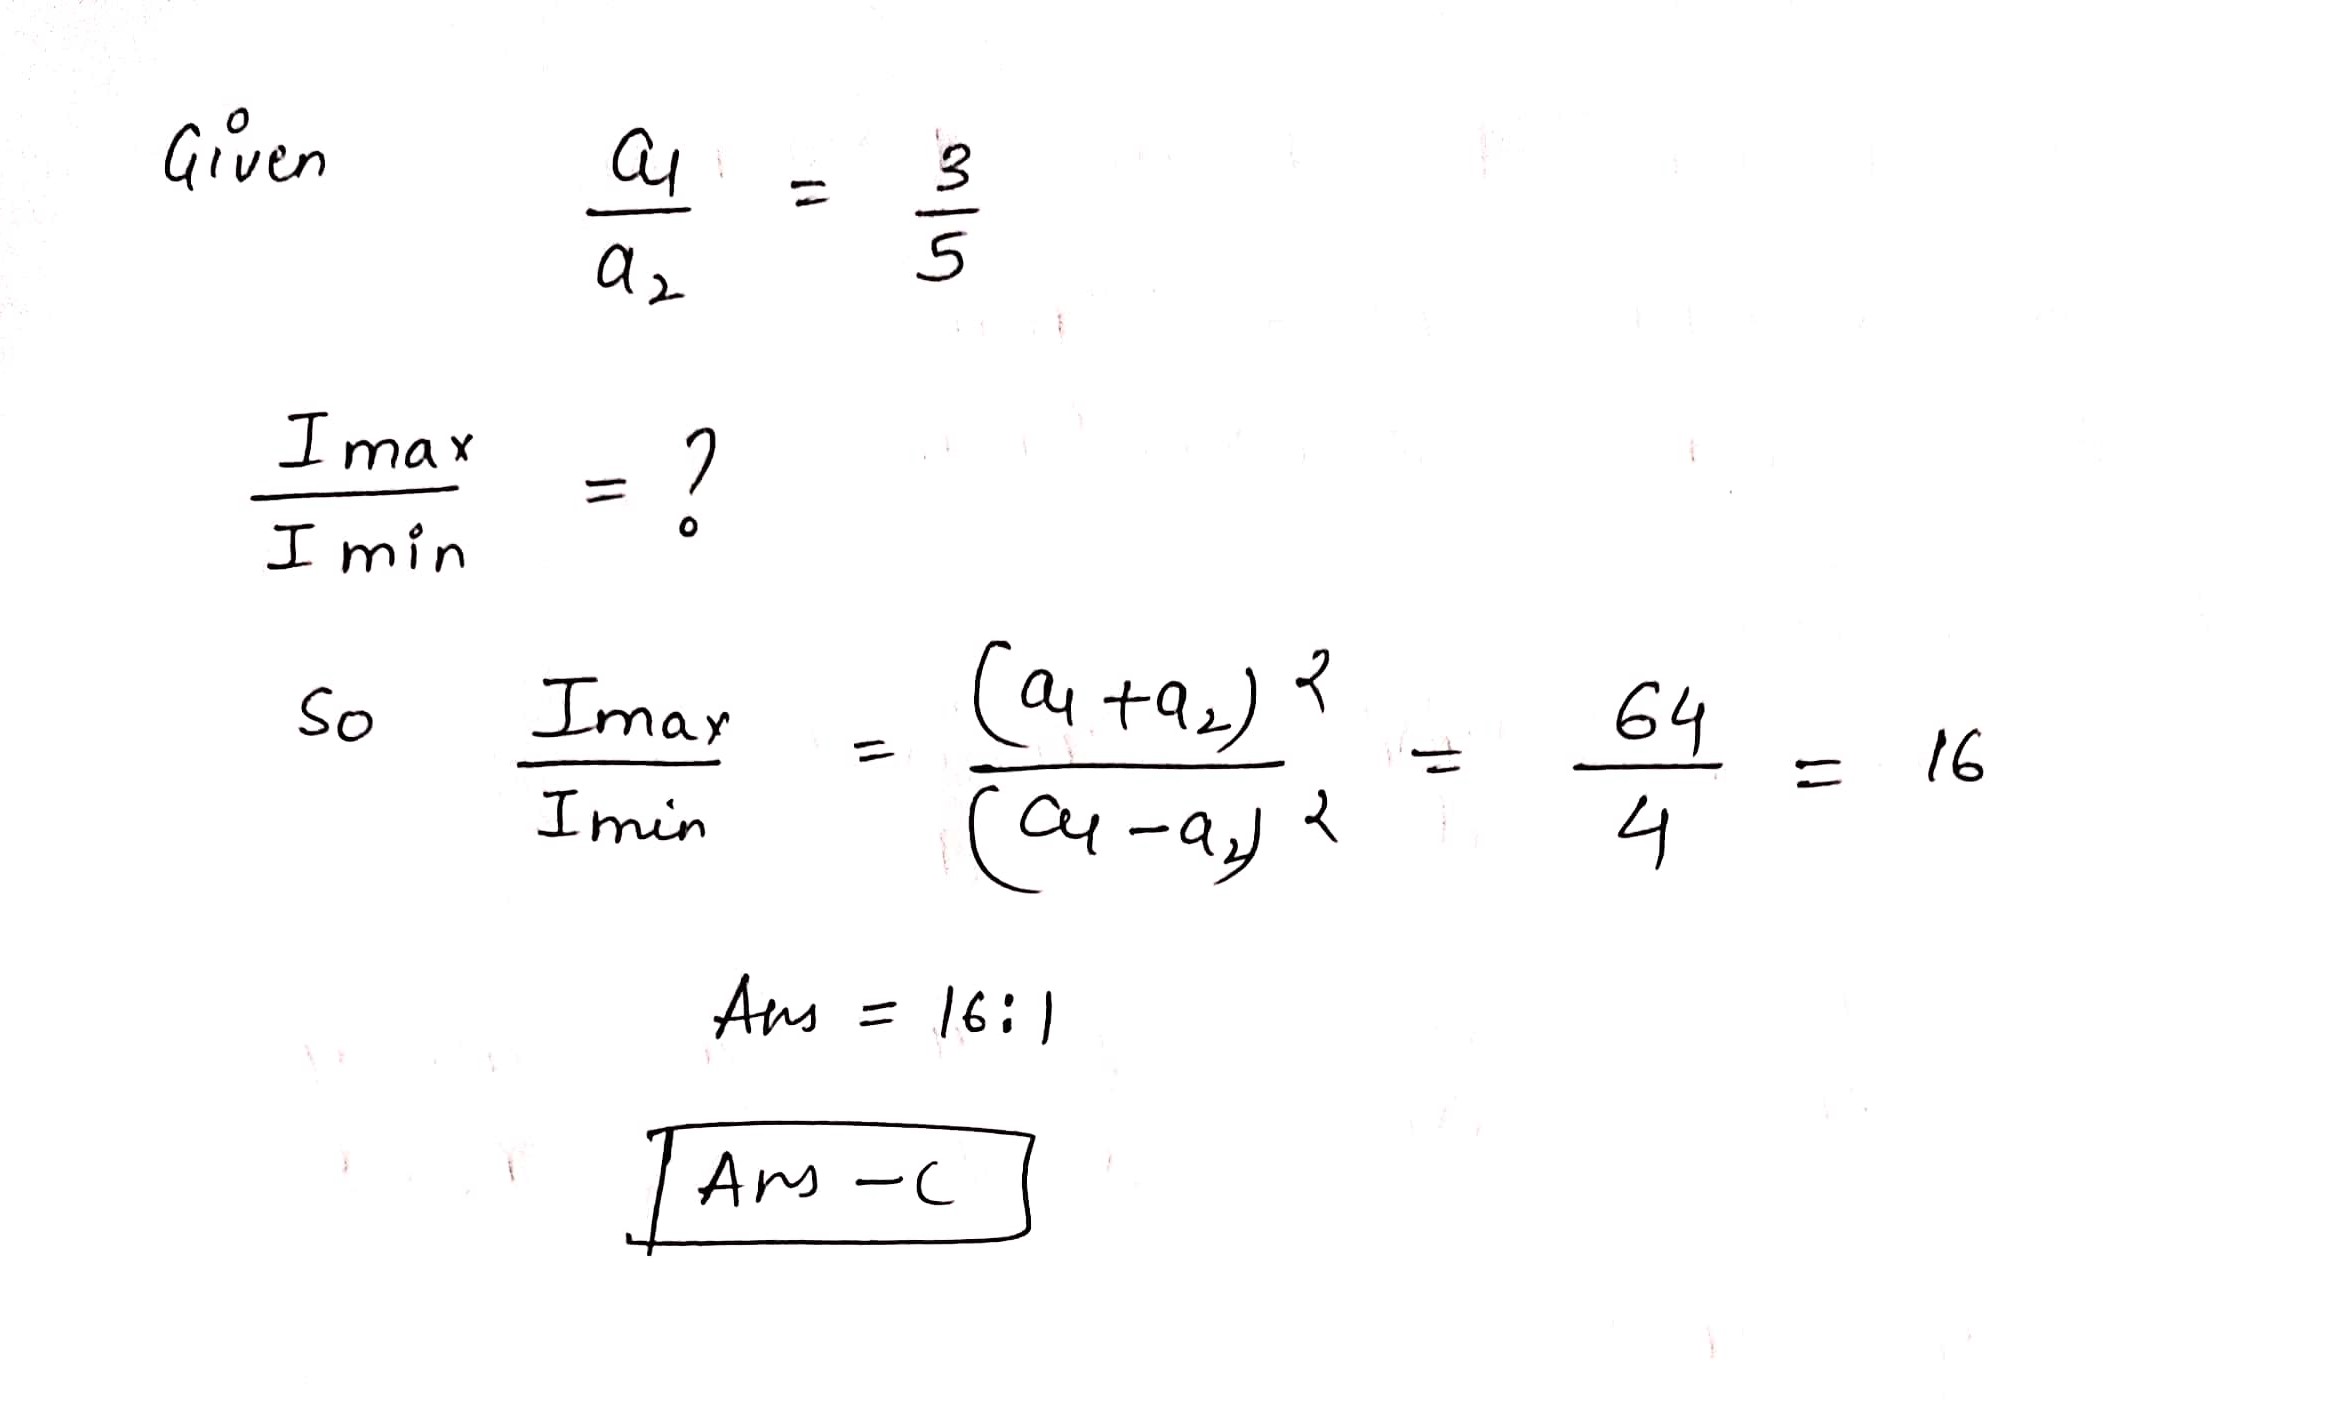 Given a1/a2 = 3/5
Imax/Imin = ?
So Imax/Imin = (a1+a2)2/(a1-a2)2 = 64/4 = 16
Ans = 16:1
Ans - C